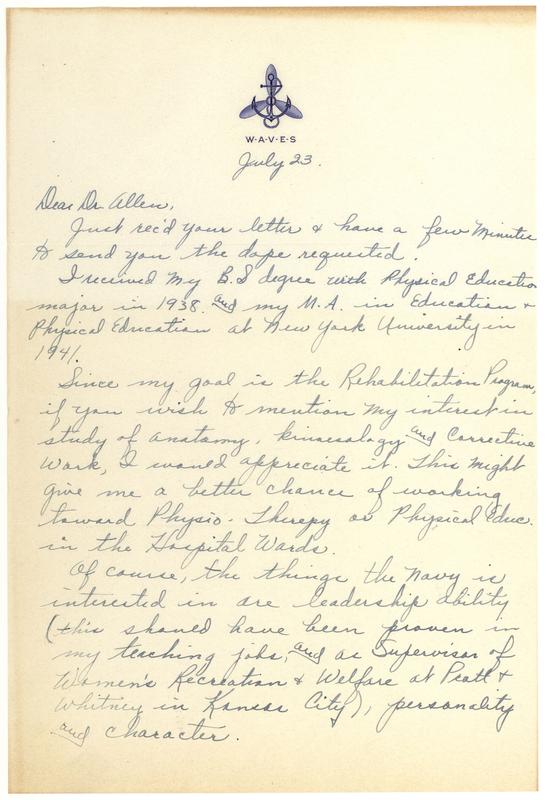 W·A·V·E·S
July 23.
Dear Dr. Allen,
Just rec'd your letter & have a few minutes
to send you the dope requested.
I received my B.S degree with Physical Education
major in 1938 and my M.A. in Education &
Physical Education at New York University in
1941.
Since my goal is the Rehabilitation Program,
if you wish to mention my interest in
study of anatomy, kinesology and Corrective
Work, I would appreciate it. This might
give me a better chance of working
toward Physio-Therepy or Physical Educ.
in the Hospital Wards.
Of course, the things the Navy is
interested in are leadership ability
(this should have been proven in
my teaching jobs, and as Supervisor of
Women's Recreation & Welfare at Pratt &
Whitney in Kansas City), personality
and character.